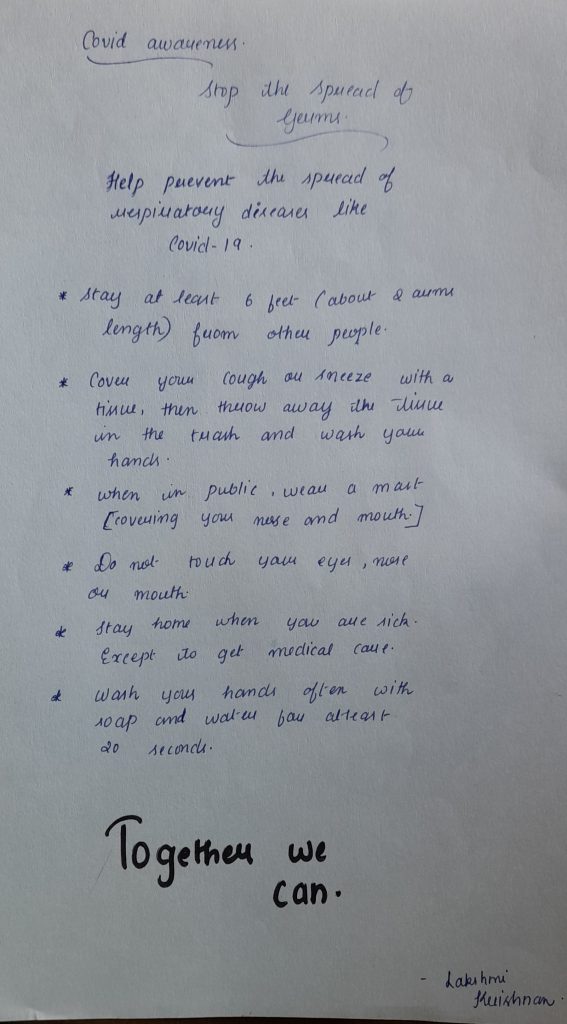 Covid awareness.
Stop the spread of
Germs.
Help prevent the spread of
respiratory diseases like
Covid-19.
* Stay at least 6 feet (about 2 arms
length) from other people.
* Cover your cough or sneeze with a
tissue, then throw away the tissue
in the trash and wash your
hands.
* when in public, wear a mask
[covering your nose and mouth.]
* Do not touch your eyes, nose
or mouth.
* Stay home when you are sick.
Except to get medical care.
* Wash your hands often with
soap and water for atleast
20 seconds.
Together we
can.
- Lakshmi
Krishnan.